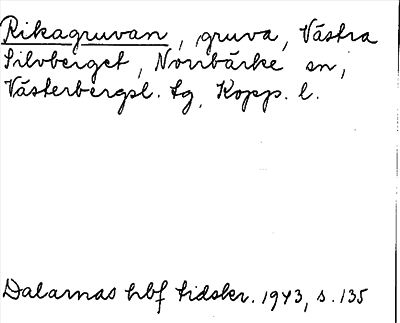 Rikagruvan, gruva, Västra
Silvberget, Norrbärke sn,
Västerbergsl. tg, Kopp. l.
Dalarnas hbf tidskr. 1943, s. 135